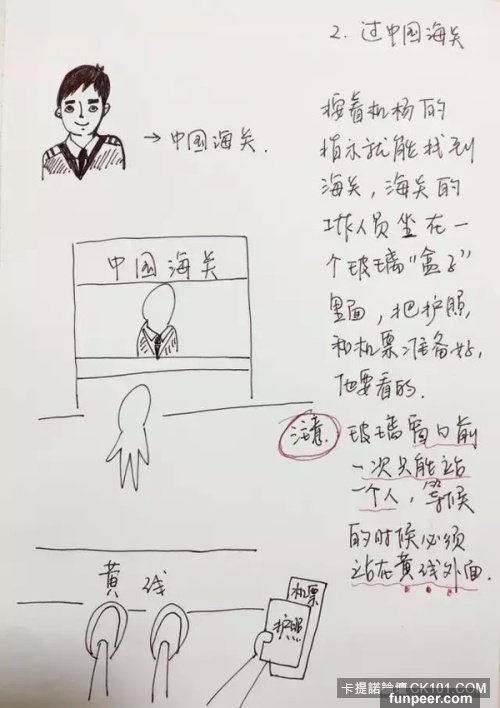 2. 过中国海关
→中国海关.
按着机场的
指示就能找到
海关，海关的
工作人员坐在一
个玻璃“盒子”
里面，把护照
和机票准备好，
他要看的.
中国海关
注意
玻璃窗口前
一次只能站
一个人，等候
的时候必须
站在黄线外面.
黄线
机票
护照
卡提諾論壇CK101.COM
funpeer.com